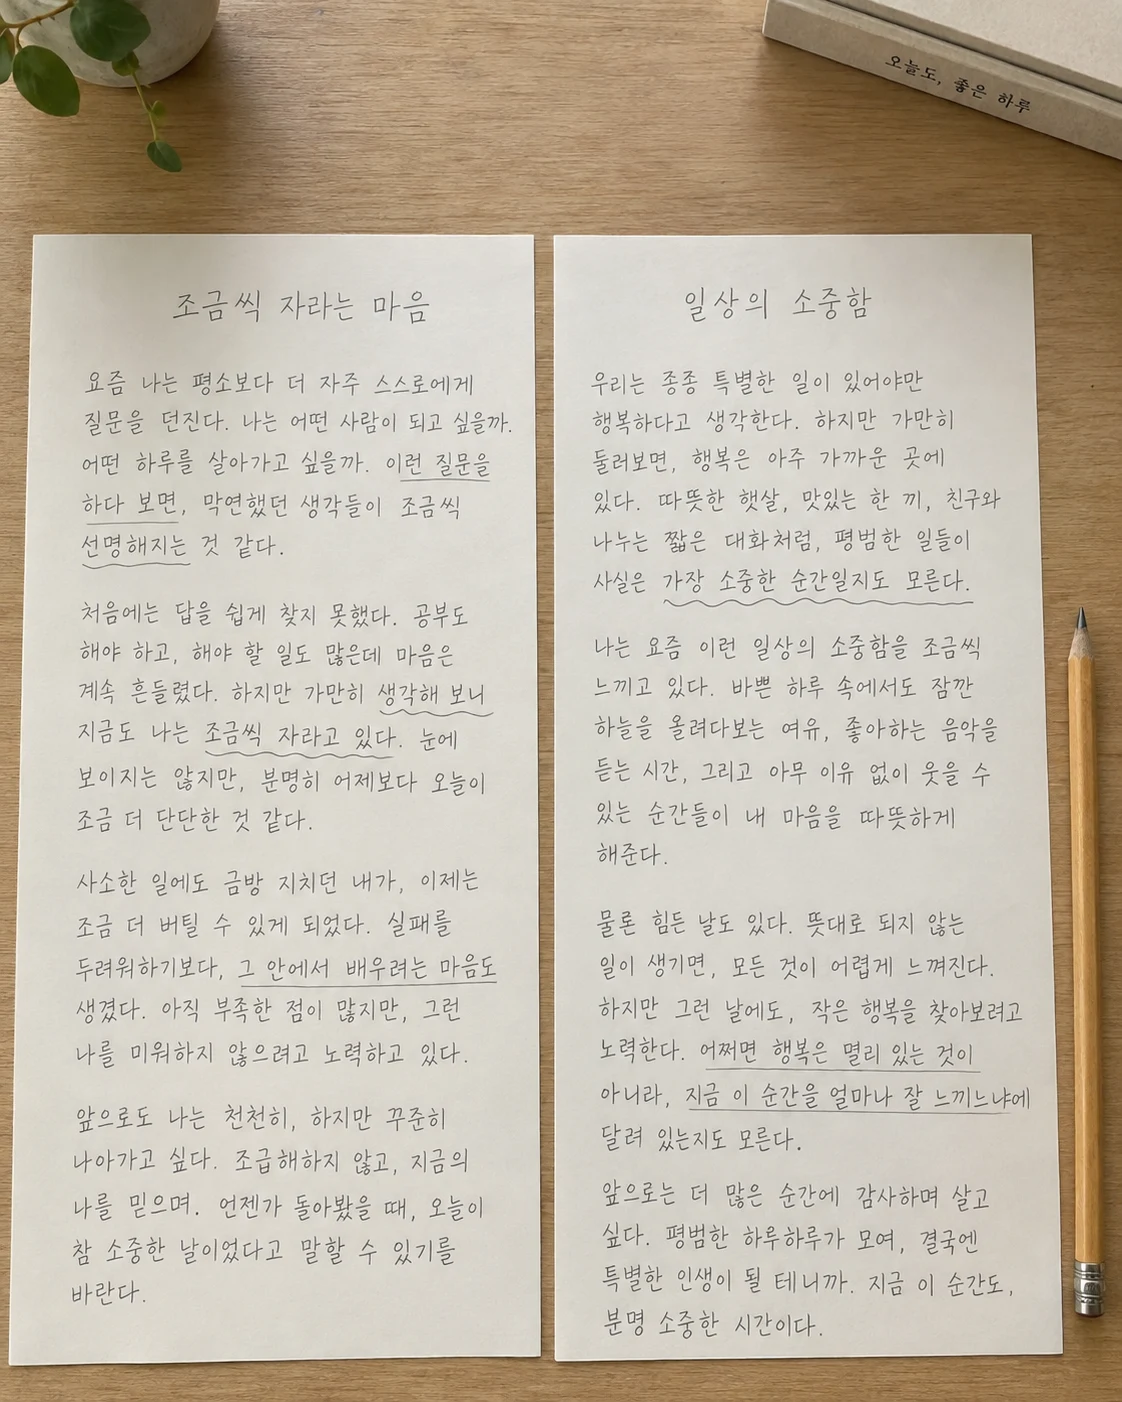 오늘도, 좋은 하루
조금씩 자라는 마음
요즘 나는 평소보다 더 자주 스스로에게
질문을 던진다. 나는 어떤 사람이 되고 싶을까.
어떤 하루를 살아가고 싶을까. 이런 질문을
하다 보면, 막연했던 생각들이 조금씩
선명해지는 것 같다.
처음에는 답을 쉽게 찾지 못했다. 공부도
해야 하고, 해야 할 일도 많은데 마음은
계속 흔들렸다. 하지만 가만히 생각해 보니
지금도 나는 조금씩 자라고 있다. 눈에
보이지는 않지만, 분명히 어제보다 오늘이
조금 더 단단한 것 같다.
사소한 일에도 금방 지치던 내가, 이제는
조금 더 버틸 수 있게 되었다. 실패를
두려워하기보다, 그 안에서 배우려는 마음도
생겼다. 아직 부족한 점이 많지만, 그런
나를 미워하지 않으려고 노력하고 있다.
앞으로도 나는 천천히, 하지만 꾸준히
나아가고 싶다. 조급해하지 않고, 지금의
나를 믿으며. 언젠가 돌아봤을 때, 오늘이
참 소중한 날이었다고 말할 수 있기를
바란다.
일상의 소중함
우리는 종종 특별한 일이 있어야만
행복하다고 생각한다. 하지만 가만히
둘러보면, 행복은 아주 가까운 곳에
있다. 따뜻한 햇살, 맛있는 한 끼, 친구와
나누는 짧은 대화처럼, 평범한 일들이
사실은 가장 소중한 순간일지도 모른다.
나는 요즘 이런 일상의 소중함을 조금씩
느끼고 있다. 바쁜 하루 속에서도 잠깐
하늘을 올려다보는 여유, 좋아하는 음악을
듣는 시간, 그리고 아무 이유 없이 웃을 수
있는 순간들이 내 마음을 따뜻하게
해준다.
물론 힘든 날도 있다. 뜻대로 되지 않는
일이 생기면, 모든 것이 어렵게 느껴진다.
하지만 그런 날에도, 작은 행복을 찾아보려고
노력한다. 어쩌면 행복은 멀리 있는 것이
아니라, 지금 이 순간을 얼마나 잘 느끼느냐에
달려 있는지도 모른다.
앞으로는 더 많은 순간에 감사하며 살고
싶다. 평범한 하루하루가 모여, 결국엔
특별한 인생이 될 테니까. 지금 이 순간도,
분명 소중한 시간이다.